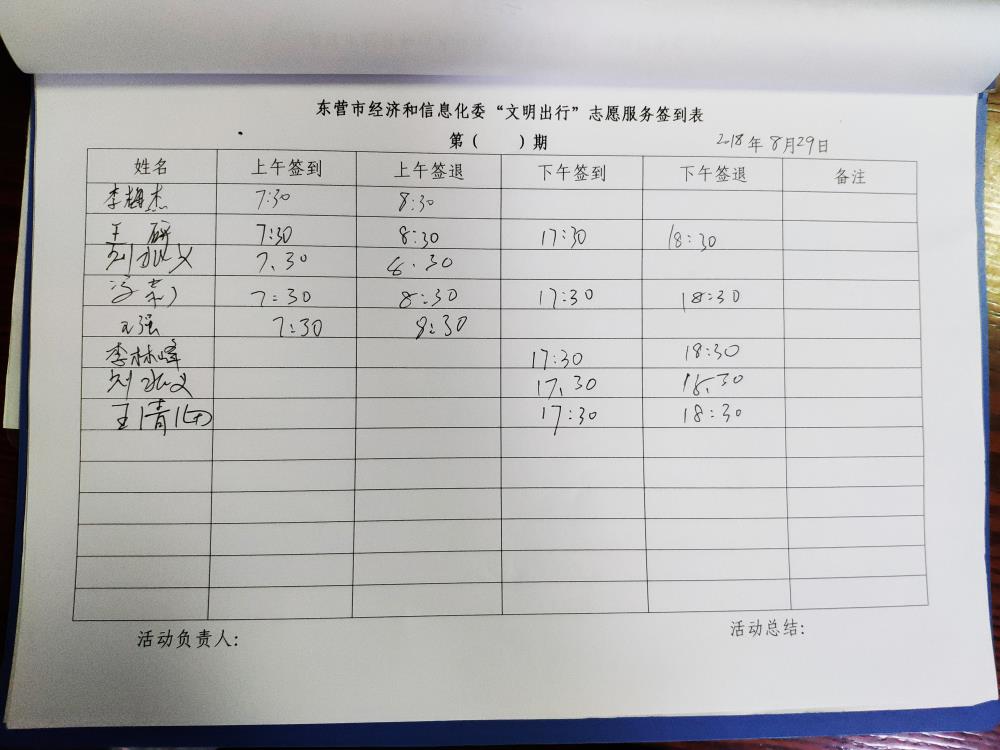 东营市经济和信息化委“文明出行”志愿服务签到表
第（ ）期 2018年8月29日
姓名 上午签到 上午签退 下午签到 下午签退 备注
李梅杰 7:30 8:30
王研 7:30 8:30 17:30 18:30
刘 义 7.30 8.30
7:30 8:30 17:30 18:30
王强 7:30 8:30
李林峰 17:30 18:30
刘 义 17.30 18.30
王清 17:30 18:30
活动负责人: 活动总结: